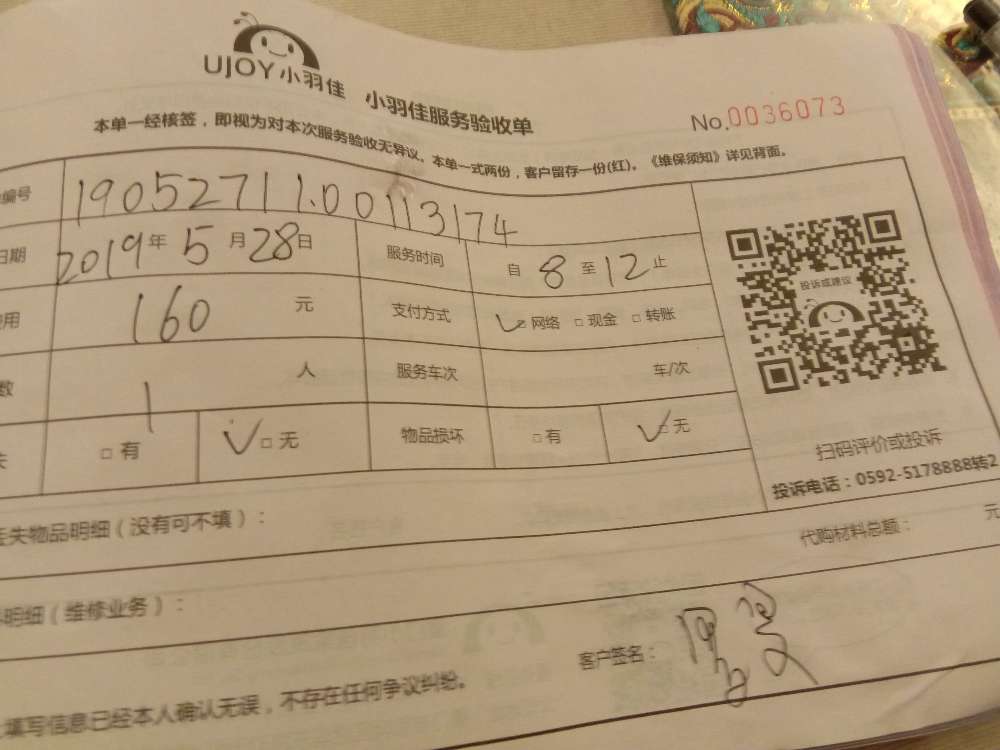 UJOY小羽佳 小羽佳服务验收单
No.0036073
本单一经核签，即视为对本次服务验收无异议。本单一式两份，客户留存一份(红)。《维保须知》详见背面。
编号 19052711.00113174
日期 2019年5月28日 服务时间 自8至12止
用 160元 支付方式 ✓□网络 □现金 □转账
数 1人 服务车次 车/次
失 □有 ✓□无 物品损坏 □有 ✓□无
投诉或建议
扫码评价或投诉
投诉电话：0592-5178888转2
丢失物品明细（没有可不填）：
代购材料总额： 元
明细（维修业务）：
客户签名：
填写信息已经本人确认无误，不存在任何争议纠纷。